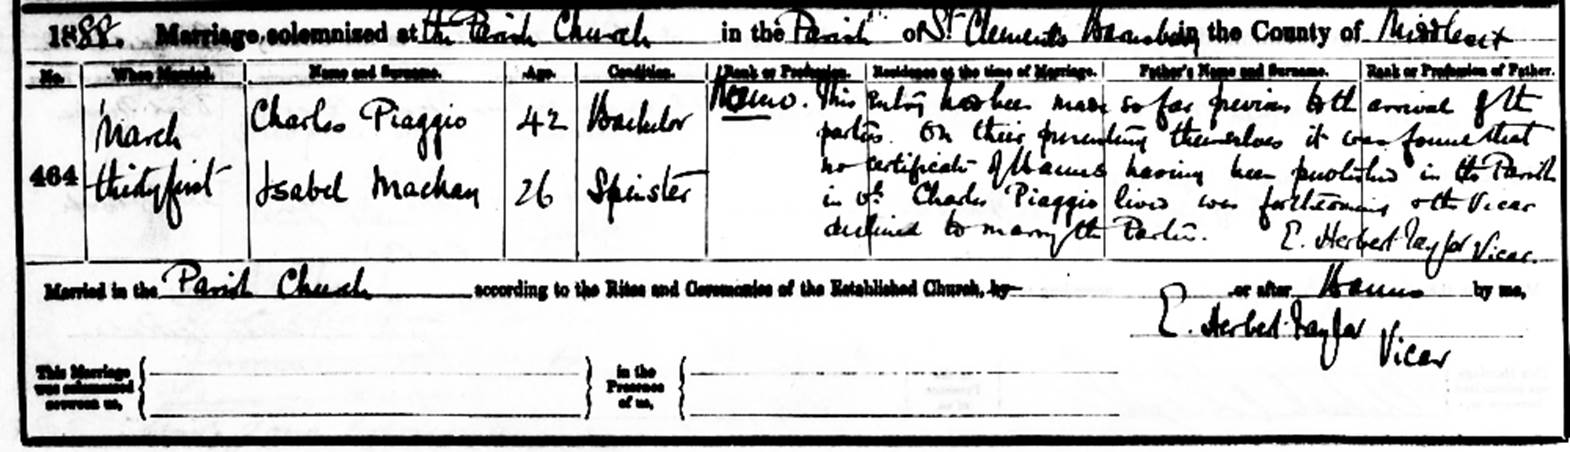 1888. Marriage solemnized at the Parish Church in the Parish of St Clements Barnsbury in the County of Middlesex
No. When Married. Name and Surname. Age. Condition. Rank or Profession. Residence at the time of Marriage. Father's Name and Surname. Rank or Profession of Father.
464 March thirtyfirst
Charles Piaggio 42 Bachelor
Isabel Machan 26 Spinster
Memo. This Entry had been made so far previous to the arrival of the
parties. On their presenting themselves it was found that
no certificate of Banns having been published in the Parish
in wh. Charles Piaggio lives was forthcoming & the Vicar
declined to marry the Parties. E. Herbert-Taylor Vicar.
Married in the Parish Church according to the Rites and Ceremonies of the Established Church, by or after Banns by me,
E. Herbert-Taylor Vicar
This Marriage was solemnized between us,
in the Presence of us,